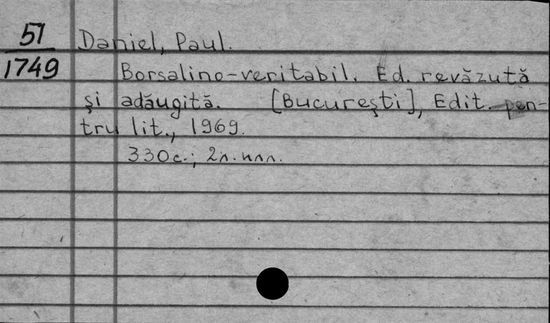 51
1749
Daniel, Paul.
Borsalino-veritabil. Ed. revăzută
și adăugită. [București], Edit. pen-
tru lit., 1969.
330с.; 2л. илл.